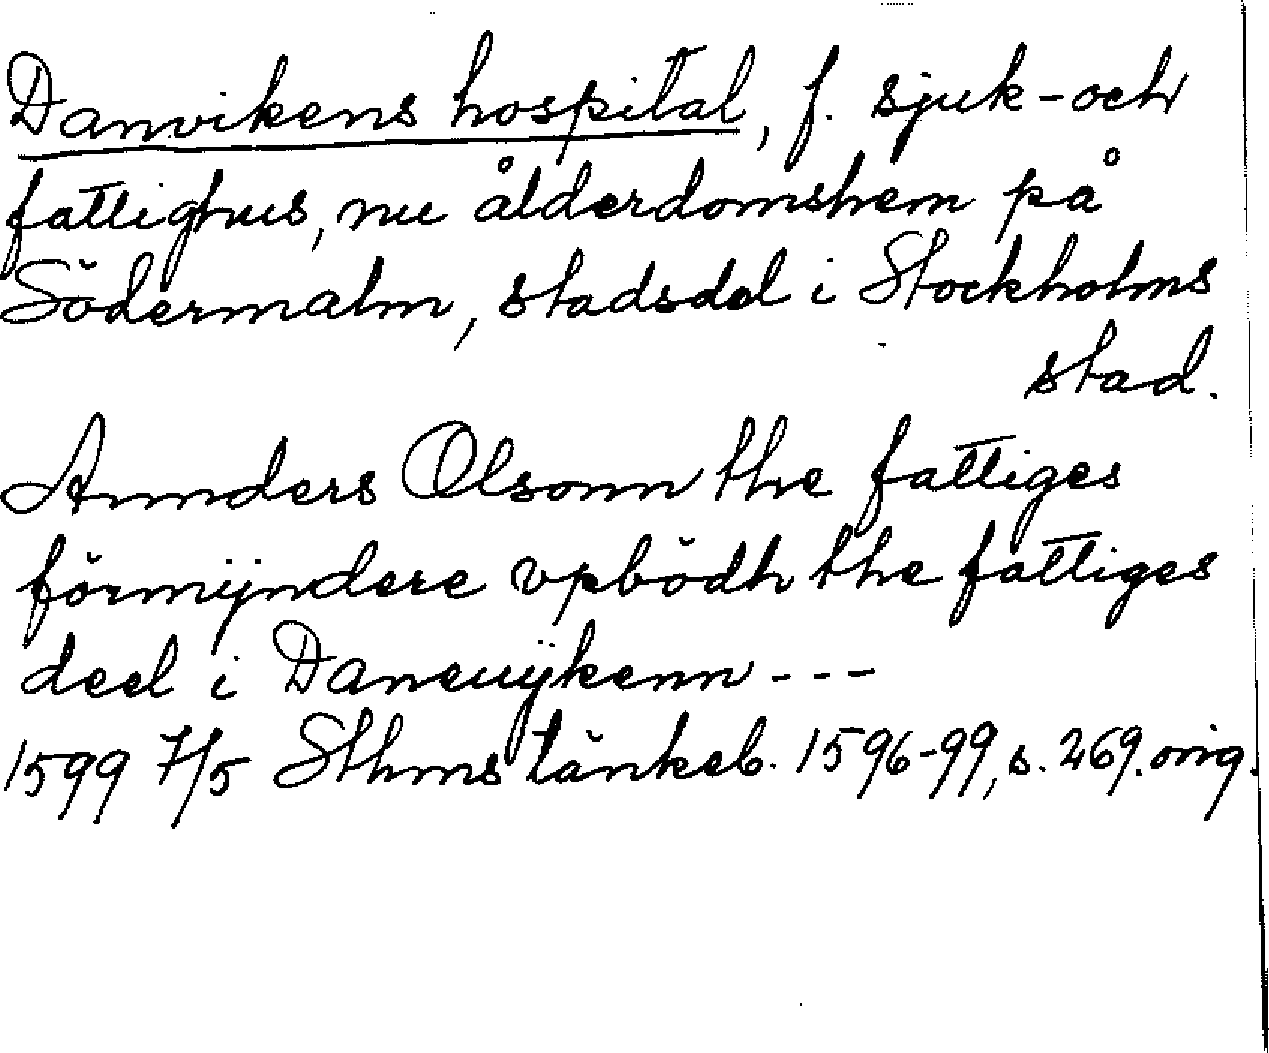 Danvikens hospital, f. sjuk-och
fattighus, nu ålderdomshem på
Södermalm, stadsdel i Stockholms
stad.
Annders Olsonn the fattiges
förmÿndere vpbödh the fattiges
deel i Daneuÿkenn ---
1599 7/5 Sthms tänkeb. 1596-99, s. 269. orig.